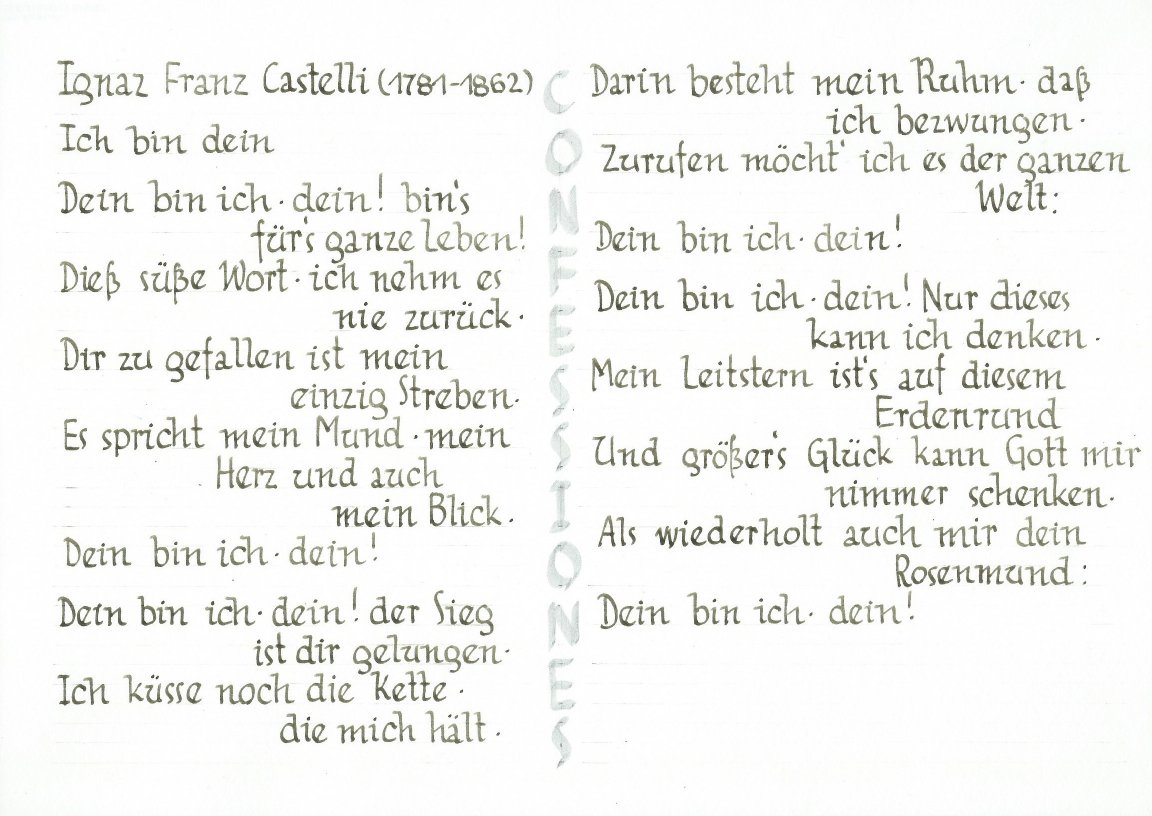 Ignaz Franz Castelli (1781-1862)
Ich bin dein
Dein bin ich · dein! bin's
für's ganze Leben!
Dieß süße Wort · ich nehm es
nie zurück ·
Dir zu gefallen ist mein
einzig Streben ·
Es spricht mein Mund · mein
Herz und auch
mein Blick ·
Dein bin ich · dein!
Dein bin ich · dein! der Sieg
ist dir gelungen ·
Ich küsse noch die Kette ·
die mich hält ·
CONFESSIONES
Darin besteht mein Ruhm · daß
ich bezwungen ·
Zurufen möcht' ich es der ganzen
Welt:
Dein bin ich · dein!
Dein bin ich · dein! Nur dieses
kann ich denken ·
Mein Leitstern ist's auf diesem
Erdenrund
Und größer's Glück kann Gott mir
nimmer schenken ·
Als wiederholt auch mir dein
Rosenmund:
Dein bin ich · dein!